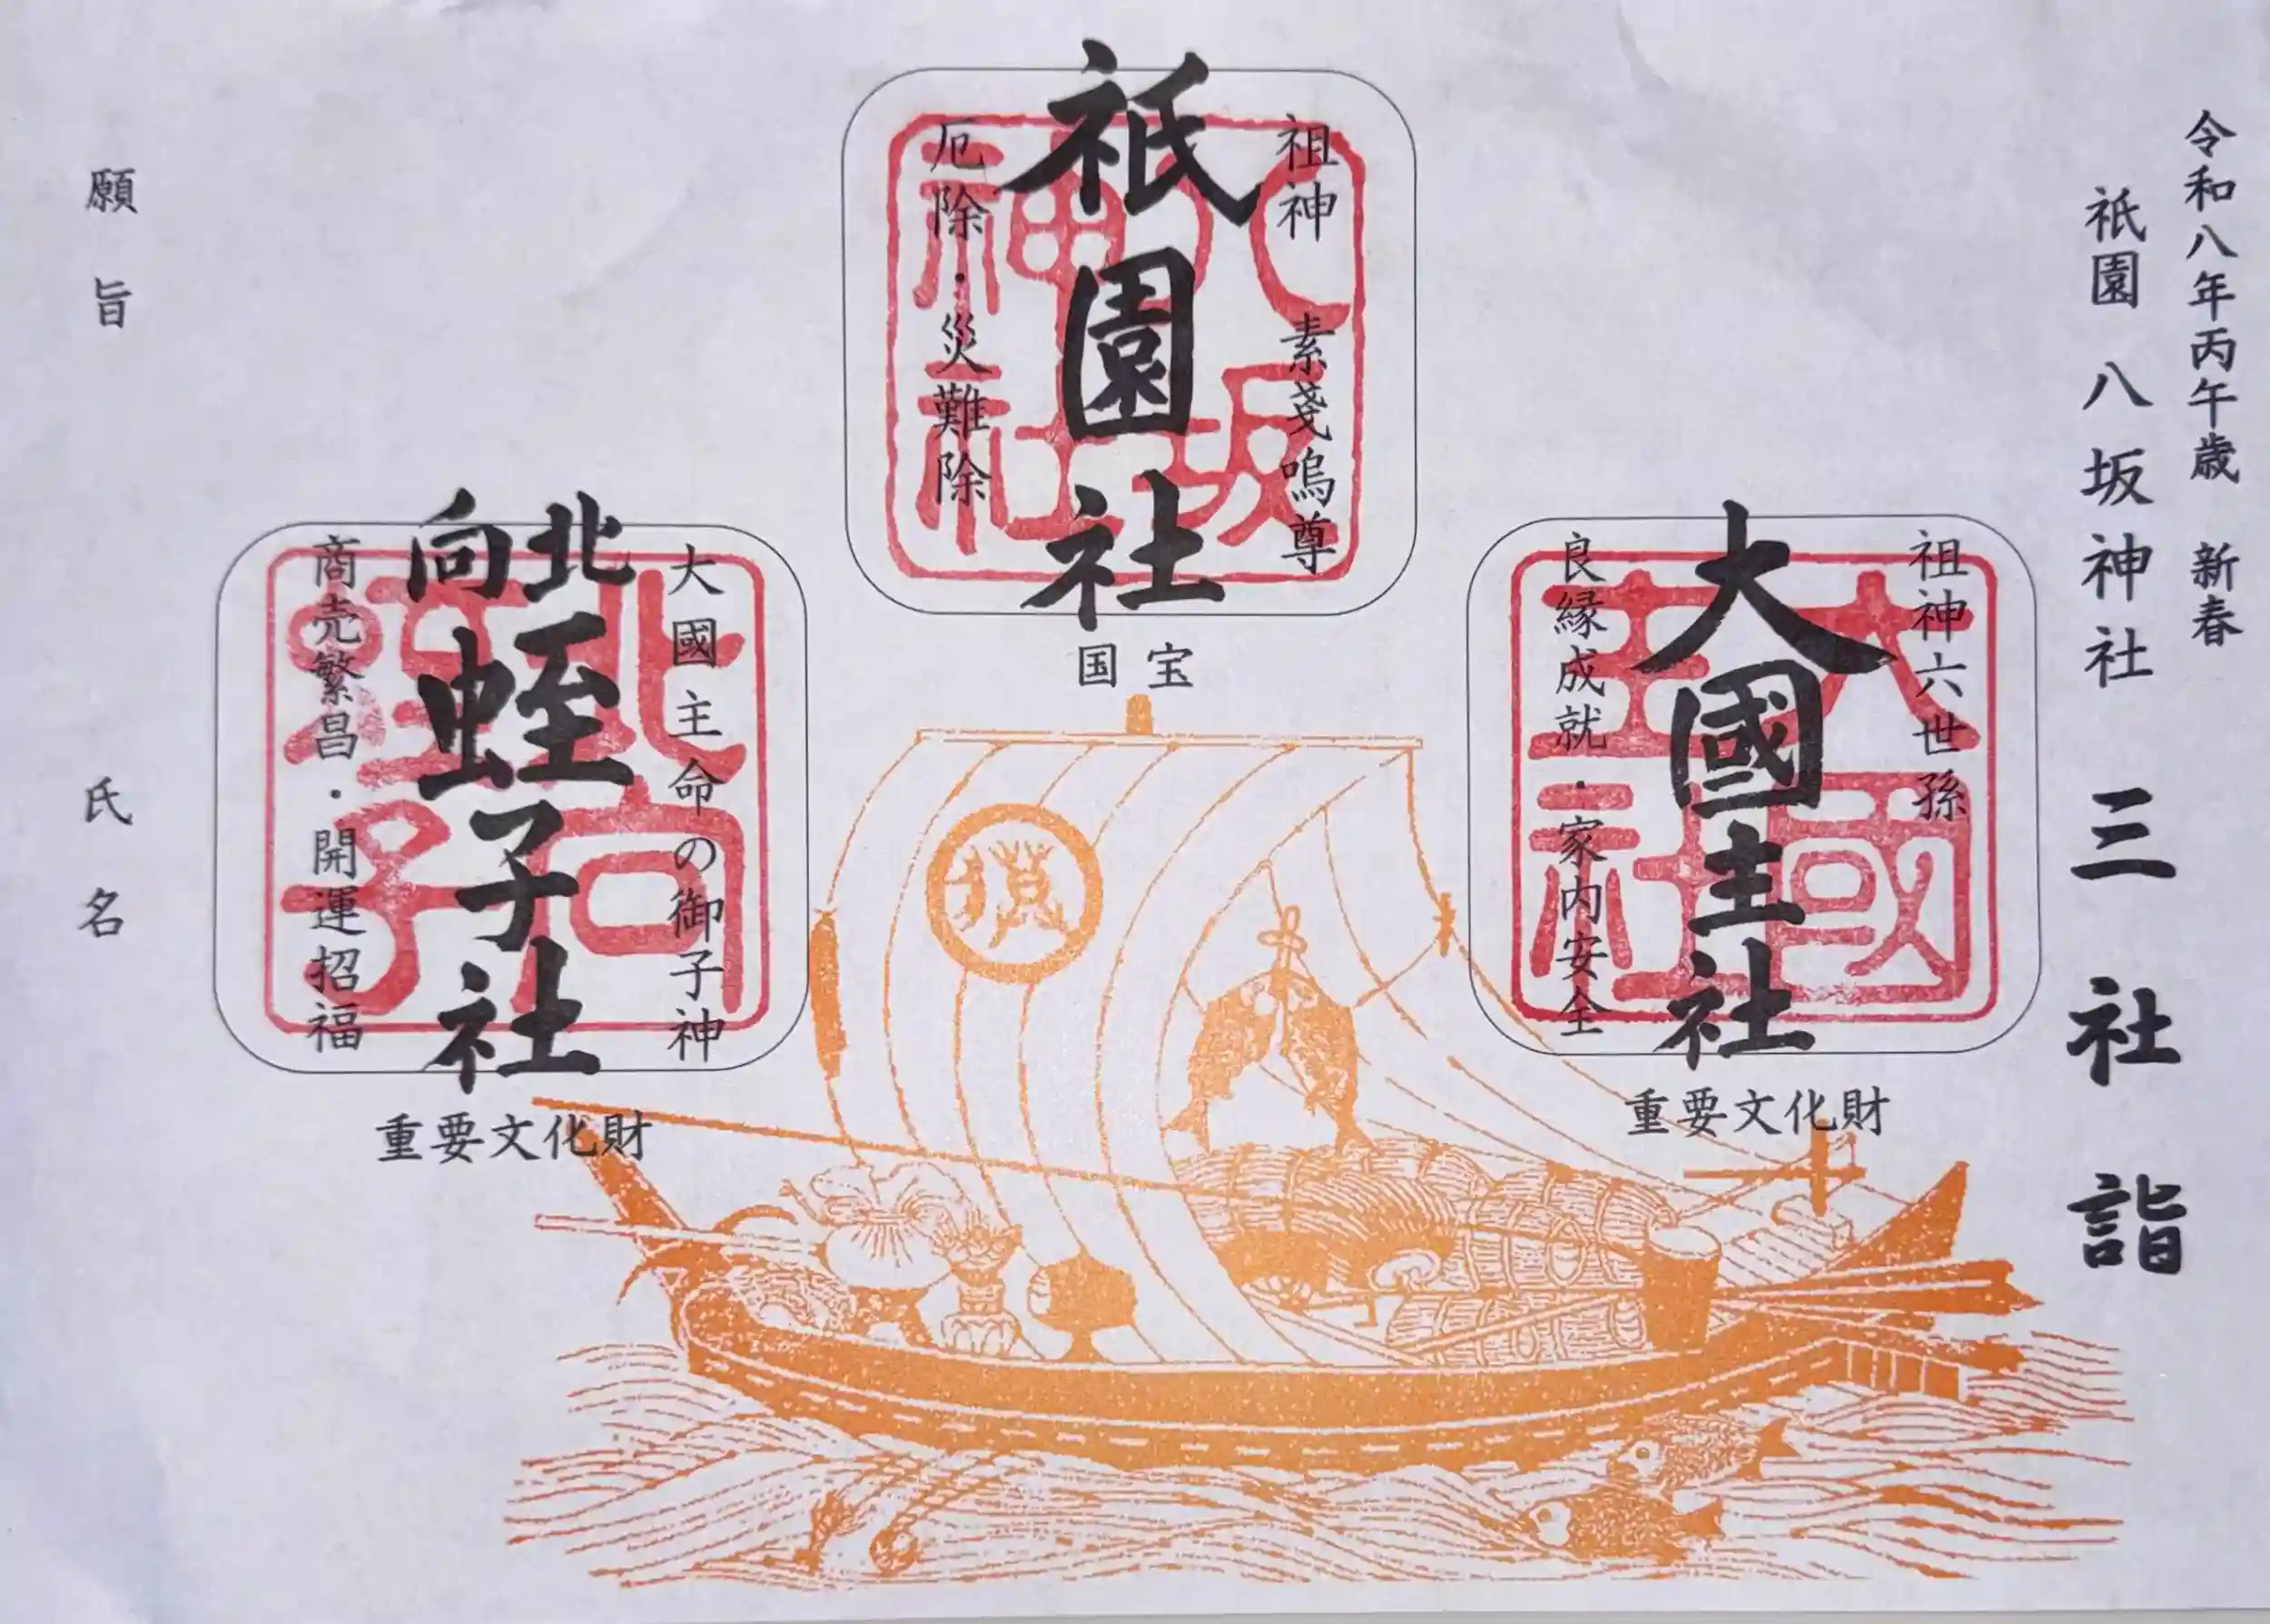 令和八年丙午歳 新春
祇園 八坂神社 三社詣
大國主社
祖神六世孫
良縁成就・家内安全
大國主社
重要文化財
祇園社
祖神 素戔嗚尊
厄除・災難除
八坂神社
国宝
北向蛭子社
大國主命の御子神
商売繁昌・開運招福
北向蛭子
重要文化財
願旨
氏名